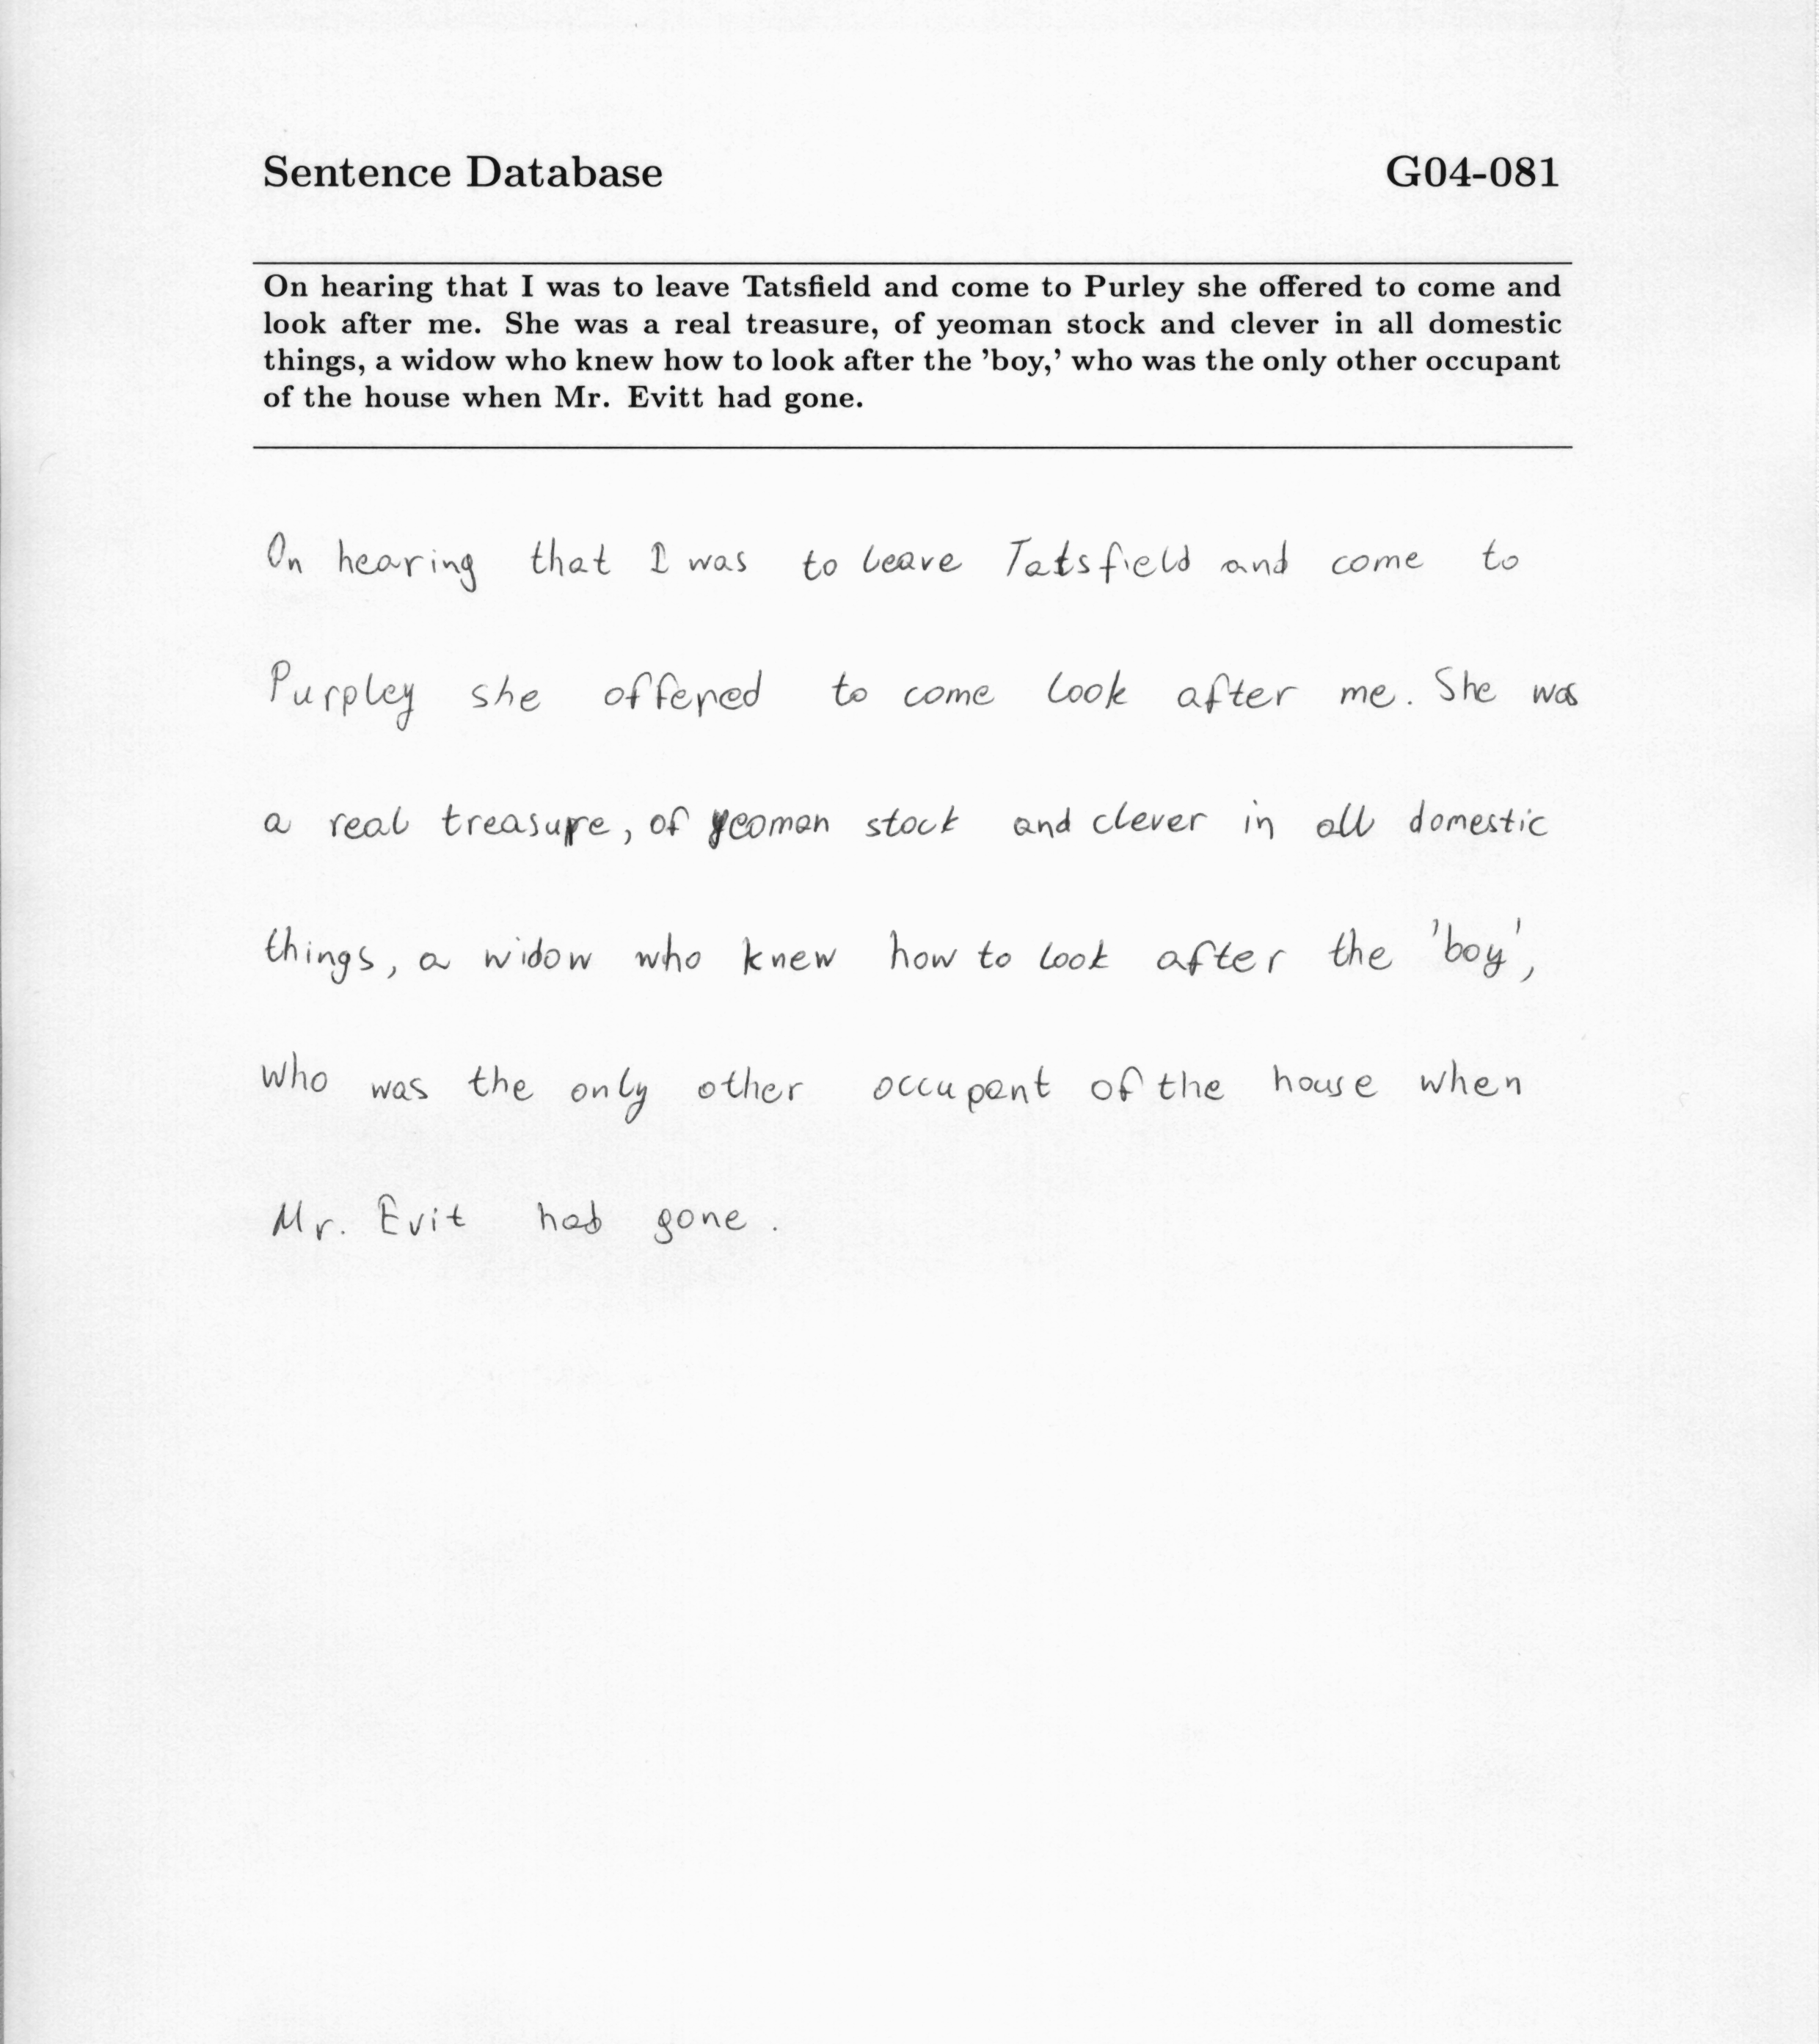 Sentence Database G04-081
On hearing that I was to leave Tatsfield and come to Purley she offered to come and
look after me. She was a real treasure, of yeoman stock and clever in all domestic
things, a widow who knew how to look after the 'boy,' who was the only other occupant
of the house when Mr. Evitt had gone.
On hearing that I was to leave Tatsfield and come to
Purpley she offered to come look after me. She was
a real treasure, of yeoman stock and clever in all domestic
things, a widow who knew how to look after the 'boy',
who was the only other occupant of the house when
Mr. Evit had gone.